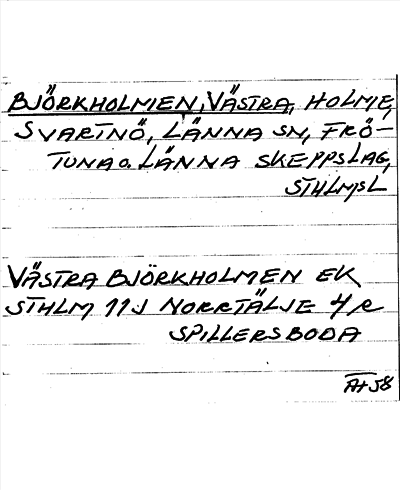 BJÖRKHOLMEN, VÄSTRA, HOLME,
SVARTNÖ, LÄNNA SN, FRÖ-
TUNA o. LÄNNA SKEPPSLAG,
STHLMSL
VÄSTRA BJÖRKHOLMEN EK
STHLM 11J NORRTÄLJE 4 R
SPILLERSBODA